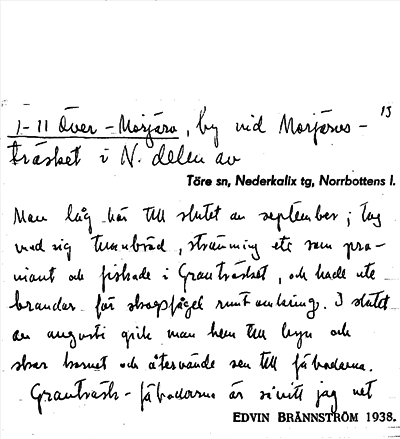 13
1-11 Över-Morjärv, by vid Morjärvs-
träsket i N. delen av
Töre sn, Nederkalix tg, Norrbottens l.
Man låg här till slutet av september; tog
med sig tunnbröd, strömming etc som pro-
viant och fiskade i Granträsket, och hade ute
brandar för skogsfågel runt omkring. I slutet
av augusti gick man hem till byn och
skar kornet och återvände sen till fäbodarna.
Granträsk-fäbodarna är såvitt jag vet
EDVIN BRÄNNSTRÖM 1938.